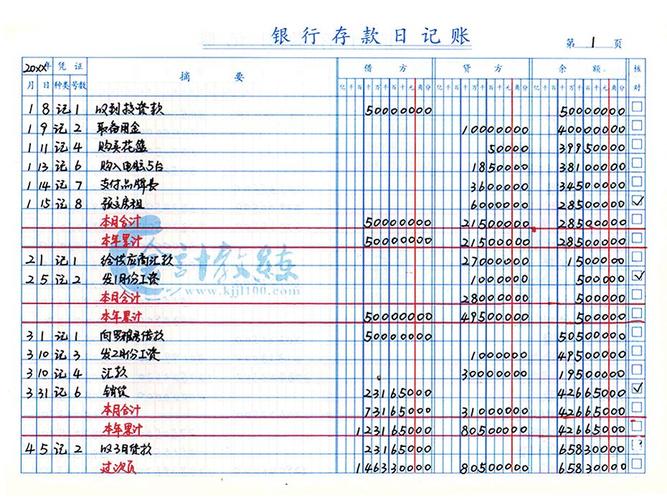 银行存款日记账
第 1 页
20XX年 凭证 摘要 借方 贷方 余额 核对
月 日 种类 号数 亿千百十万千百十元角分 亿千百十万千百十元角分 亿千百十万千百十元角分
1 8 记 1 收到投资款 50000000 50000000
1 9 记 2 取备用金 10000000 40000000
1 11 记 4 购买花篮 50000 39950000
1 13 记 6 购入电脑5台 1850000 38100000
1 14 记 7 支付品牌费 3600000 34500000
1 15 记 8 房租 6000000 28500000 ✓
本月合计 50000000 21500000 28500000
本年累计 50000000 21500000 28500000
2 1 记 1 给供应商汇款 27000000 1500000
2 5 记 2 发1月份工资 1000000 500000 ✓
本月合计 28000000 500000
本年累计 50000000 49500000 500000
3 1 记 1 向借款 50000000 50500000
3 10 记 3 发2月份工资 1000000 49500000
3 10 记 4 汇款 30000000 19500000
3 31 记 6 销货 23165000 42665000 ✓
本月合计 73165000 31000000 42665000
本年累计 123165000 80500000 42665000
4 5 记 2 收3月货款 23165000 65830000
过次页 146330000 80500000 65830000
会计教练
(www.kjjl100.com)